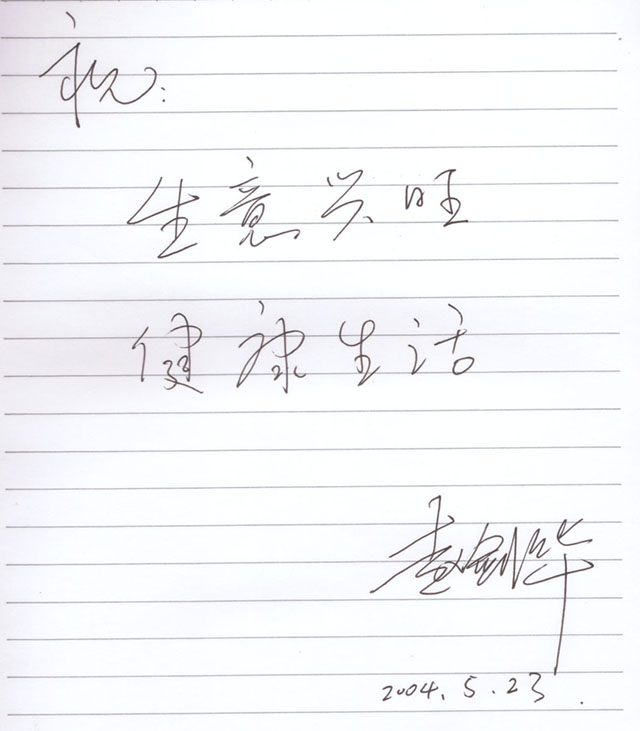 祝:
生意兴旺
健康生活
2004.5.23.